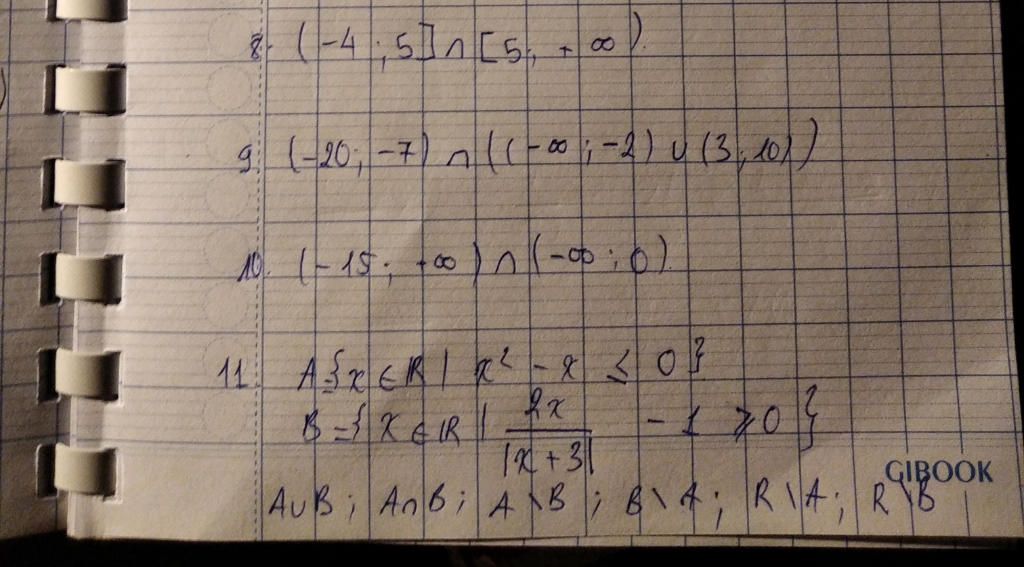 8. (-4 ; 5] ∩ [5 ; +∞).
9. (-20 ; -7) ∩ ((-∞ ; -2) ∪ (3 ; 10))
10. (-15 ; +∞) ∩ (-∞ ; 0).
11. A={x ∈ ℝ | x² - x ≤ 0}
B={x ∈ ℝ | 2x/|x+3| - 1 ≥ 0}
GIBOOK
A∪B ; A∩B ; A\B ; B\A ; R\A ; R\B